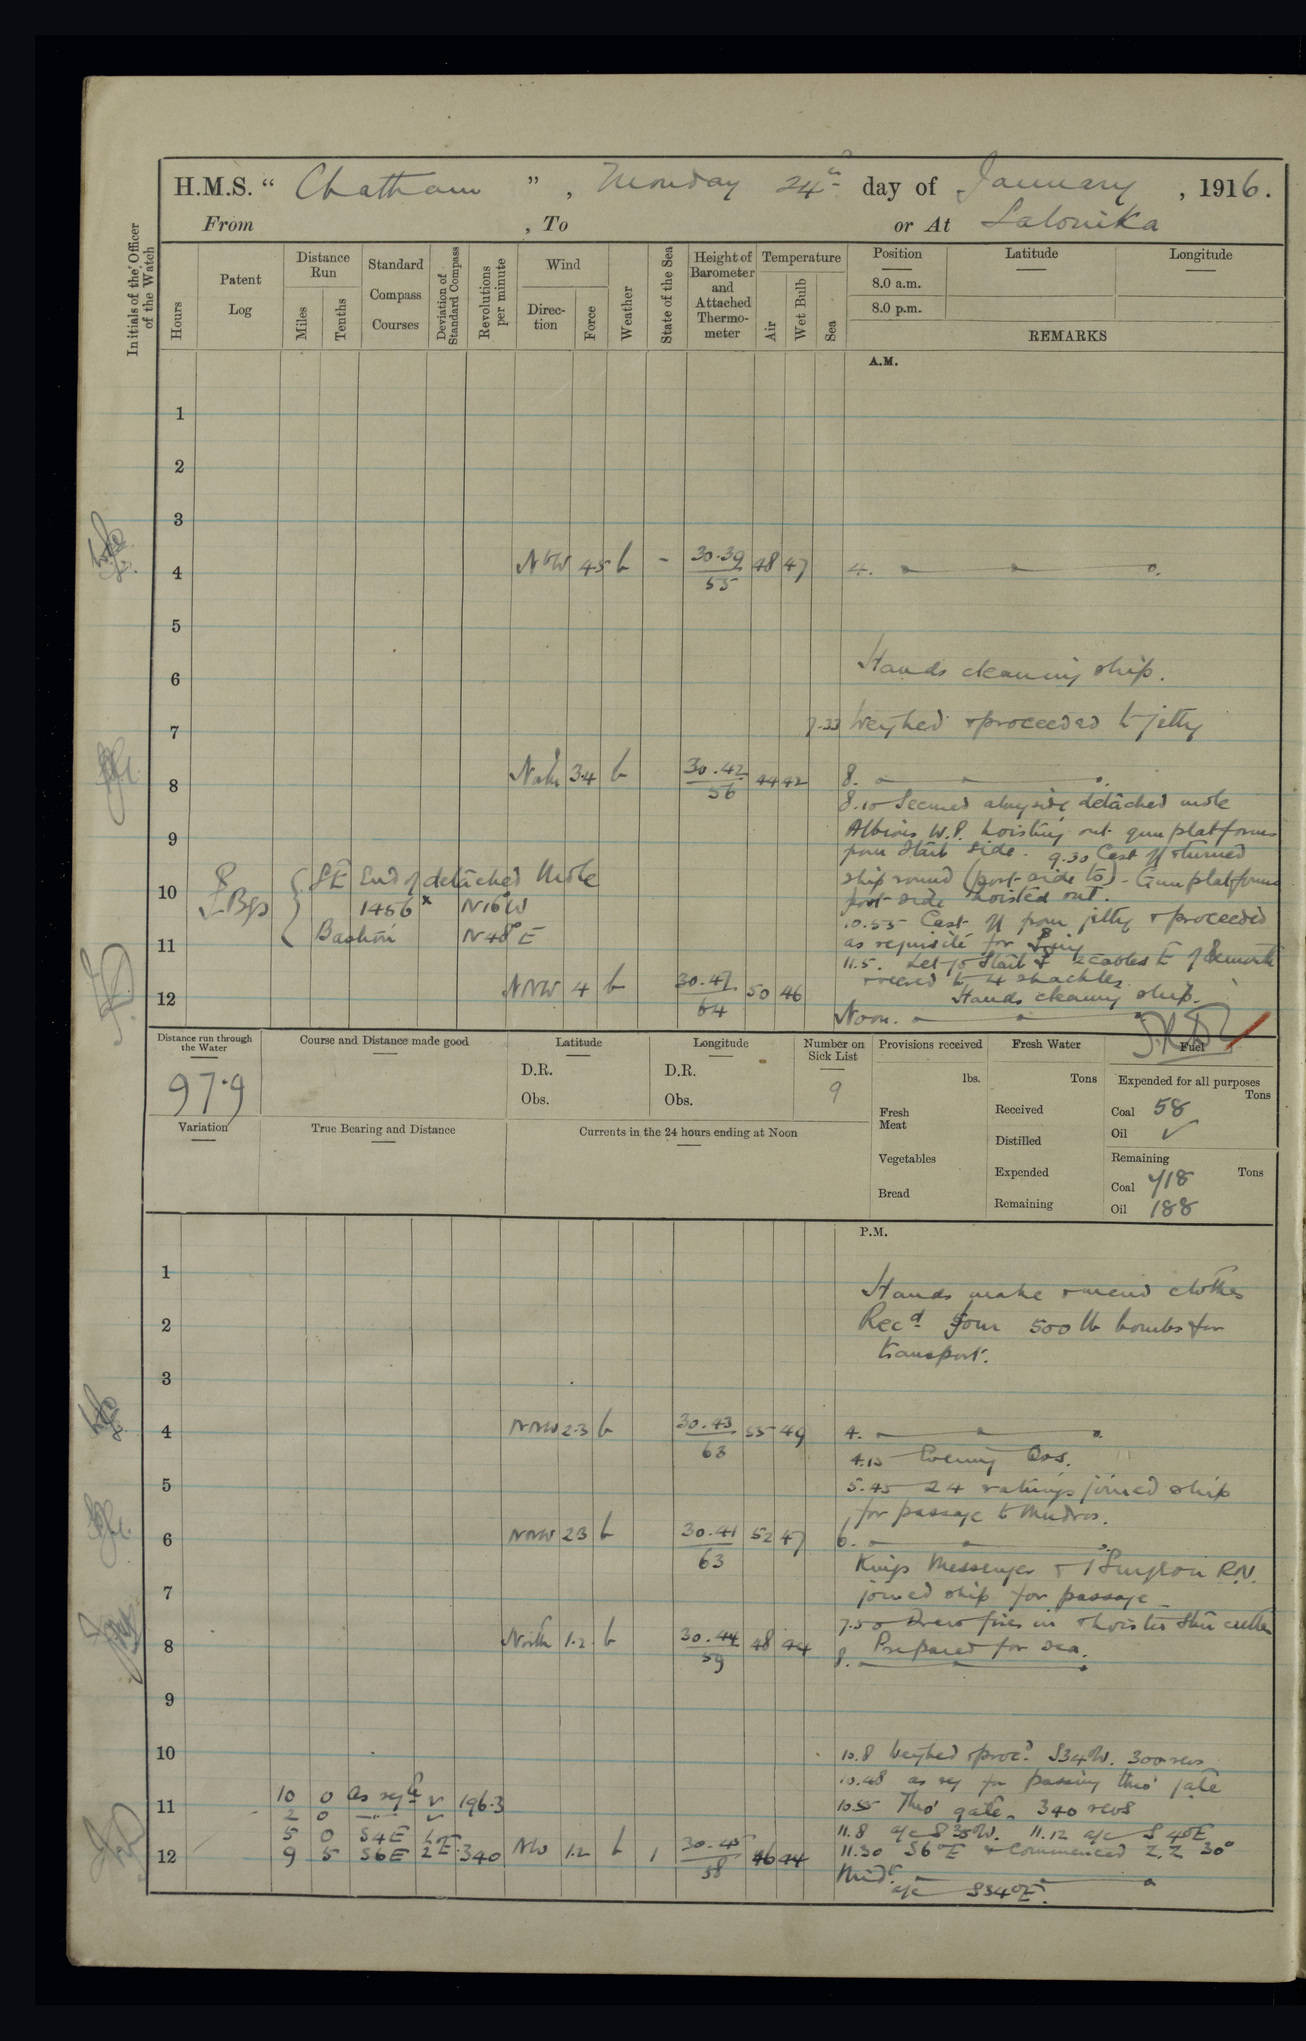 H.M.S. “ Chatham ” , Monday 24th day of January , 1916.
From , To or At Salonika
Initials of the Officer of the Watch
Hours
Patent Log
Distance Run
Miles
Tenths
Standard Compass Courses
Deviation of Standard Compass
Revolutions per minute
Wind
Direction
Force
Weather
State of the Sea
Height of Barometer and Attached Thermometer
Temperature
Air
Wet Bulb
Sea
Position
Latitude
Longitude
8.0 a.m.
8.0 p.m.
REMARKS
A.M.
1
2
3
4 NbW 4.5 b - 30.39 55 48 47 4.
5
6 Hands cleaning ship.
7 7.33 Weighed & proceeded to jetty
8 North 3.4 b 30.42 56 44 42 8.
8.10 Secured alongside detached mole
9 Albions W.P. hoisting out gun platforms
from Starb side. 9.30 Cast off & turned
SE End of detached Mole
10 ship round (port side to) - Gun platforms
Bgs 1456x N16W
port side hoisted out.
10.55 Cast off from jetty & proceeded
11 Bastion N48°E
as requisite for
11.5. Let go Starb
veered to 4 shackles
12 NNW 4 b 30.47 64 50 46 Hands cleaning ship.
Noon.
Distance run through the Water
97.9
Course and Distance made good
Latitude
D.R.
Obs.
Longitude
D.R.
Obs.
Number on Sick List
9
Provisions received
lbs.
Fresh Meat
Vegetables
Bread
Fresh Water
Tons
Received
Distilled
Expended
Remaining
Fuel
Expended for all purposes
Tons
Coal 58
Oil ✓
Remaining
Tons
Coal 718
Oil 188
Variation
True Bearing and Distance
Currents in the 24 hours ending at Noon
P.M.
1 Hands make & mend clothes
2 Recd four 500 lb bombs for
transport.
3
4 NNW 2.3 b 30.43 63 55 49 4.
4.15 Evening Qrs.
5 5.45 24 ratings joined ship
for passage to Mudros.
6 NNW 2.3 b 30.41 63 52 47 6.
Kings Messenger & 1 Surgeon R.N.
7 joined ship for passage
7.50 Drew fires in & hoisted Stm cutter
8 North 1.2 b 30.44 59 48 44 Prepared for sea.
8.
9
10 10.8 Weighed & procd. S34°W. 300 revs
10.48 as req for passing thro' gate
10 0 as reqte ✓ 196.3
11 10.55 Thro' gate. 340 revs
2 0 —"— ✓
5 0 S4E
11.8 a/c S35°W. 11.12 a/c S4°E
12 9 5 S6E 2E 340 NW 1.2 b 1 30.45 58 46 44 11.30 S6°E & Commenced Z.Z 30°
Midt.
a/c S34°E.